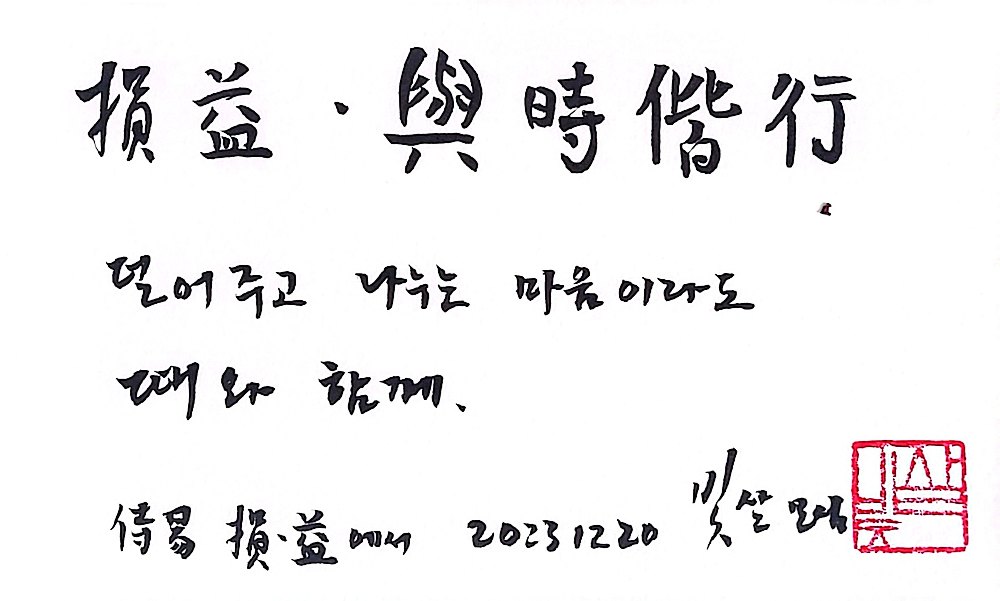 損益·與時偕行
덜어주고 나누는 마음이라도
때와 함께.
侍易 損·益에서 20231220 빛살